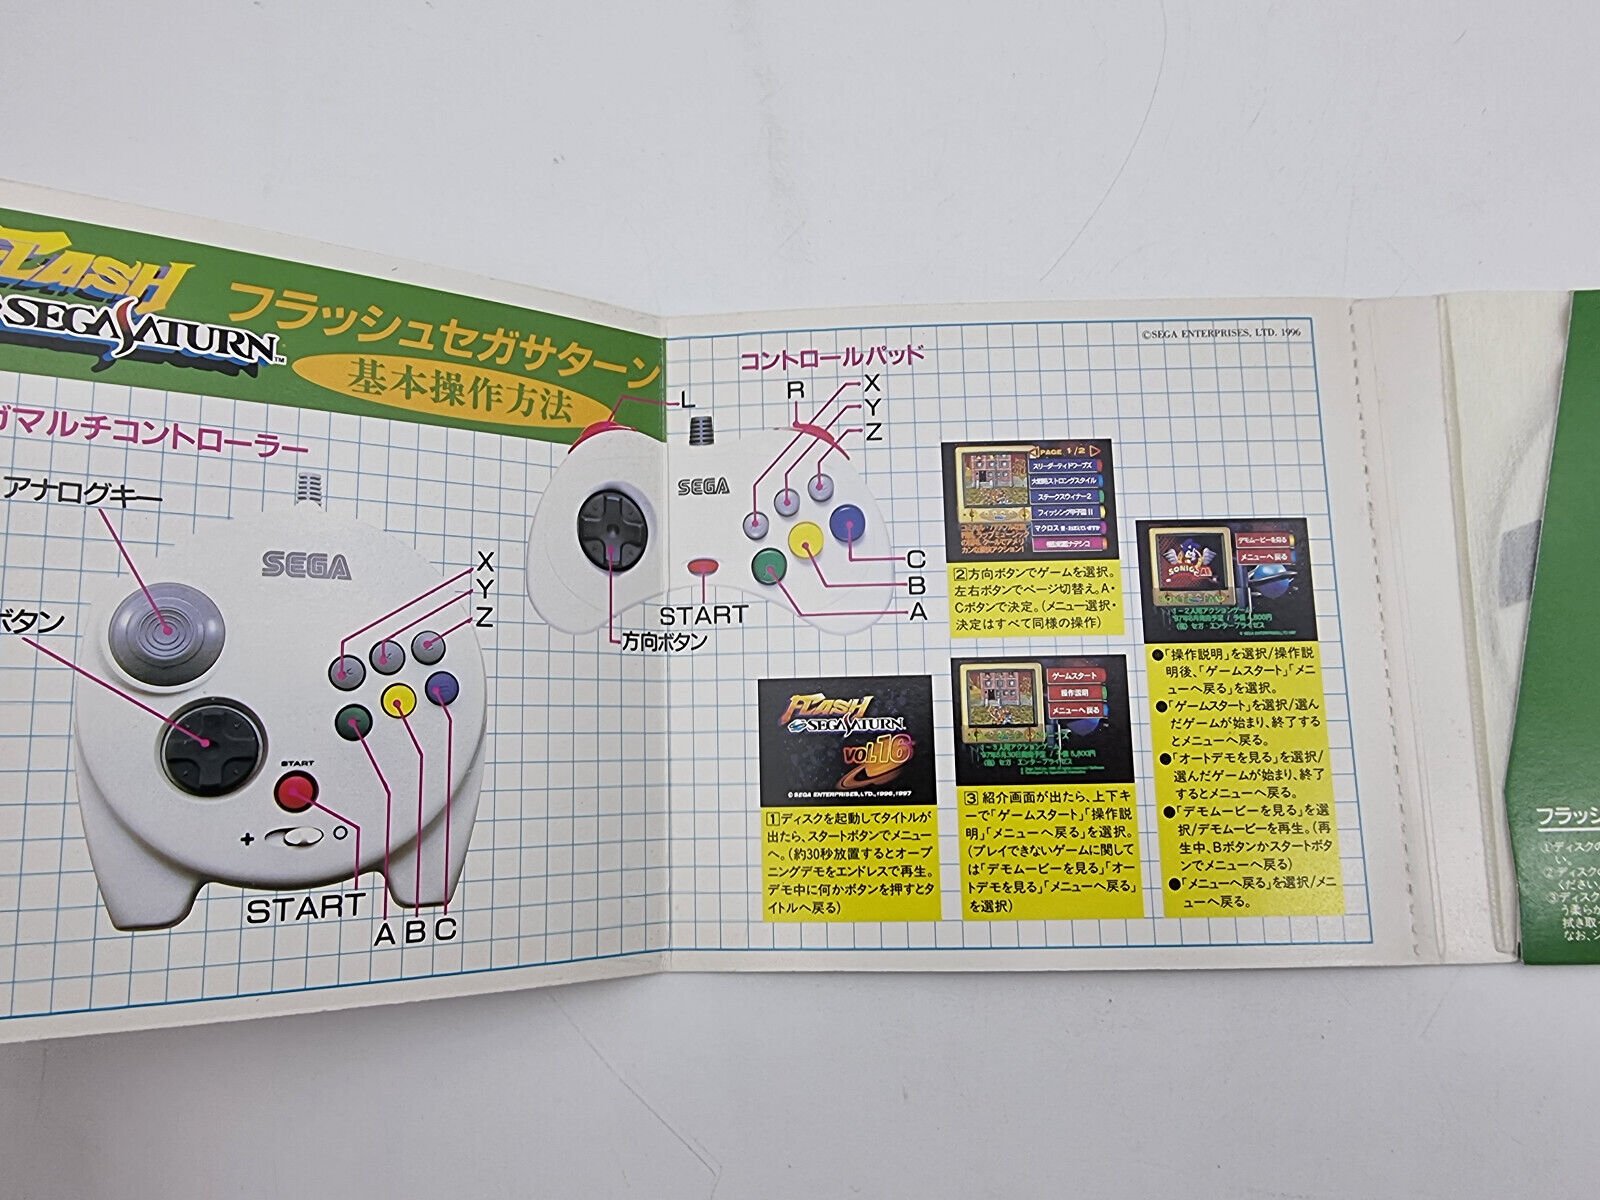 FLASH
SEGA SATURN™
フラッシュセガサターン
基本操作方法
マルチコントローラー
アナログキー
ボタン
SEGA
X
Y
Z
START
START
A B C
コントロールパッド
L
R
X
Y
Z
SEGA
C
B
A
START
方向ボタン
©SEGA ENTERPRISES, LTD. 1996
PAGE 1/2
スターウィナー2
フィッシング甲子園II
マクロス
②方向ボタンでゲームを選択。
左右ボタンでページ切替え。A・
Cボタンで決定。(メニュー選択・
決定はすべて同様の操作)
FLASH
SEGA SATURN
VOL.16
©SEGA ENTERPRISES,LTD.,1996,1997
①ディスクを起動してタイトルが
出たら、スタートボタンでメニュー
へ。(約30秒放置するとオープ
ニングデモをエンドレスで再生。
デモ中に何かボタンを押すとタ
イトルへ戻る)
ゲームスタート
操作説明
メニューへ戻る
③紹介画面が出たら、上下キ
ーで「ゲームスタート」「操作説
明」「メニューへ戻る」を選択。
(プレイできないゲームに関して
は「デモムービーを見る」「オー
トデモを見る」「メニューへ戻る」
を選択)
デモムービーを見る
メニューへ戻る
●「操作説明」を選択/操作説
明後、「ゲームスタート」「メニ
ューへ戻る」を選択。
●「ゲームスタート」を選択/選ん
だゲームが始まり、終了する
とメニューへ戻る。
●「オートデモを見る」を選択/
選んだゲームが始まり、終了
するとメニューへ戻る。
●「デモムービーを見る」を選
択/デモムービーを再生。(再
生中、Bボタンかスタートボタ
ンでメニューへ戻る)
●「メニューへ戻る」を選択/メニ
ューへ戻る。
フラッシ
①ディスクの
い。
②ディスクの
ください。
③ディスク
う柔らか
拭き取っ
なお、シ